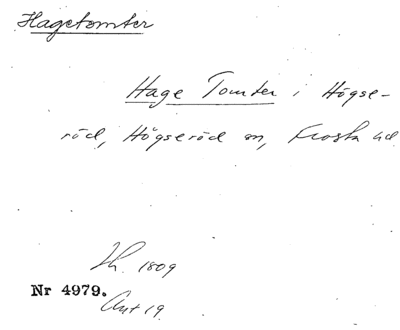 Hagetomter
Hage Tomter i Högse-
röd, Högseröd sn, Frosta hd
Sk. 1809
Nr 4979.
Akt 19